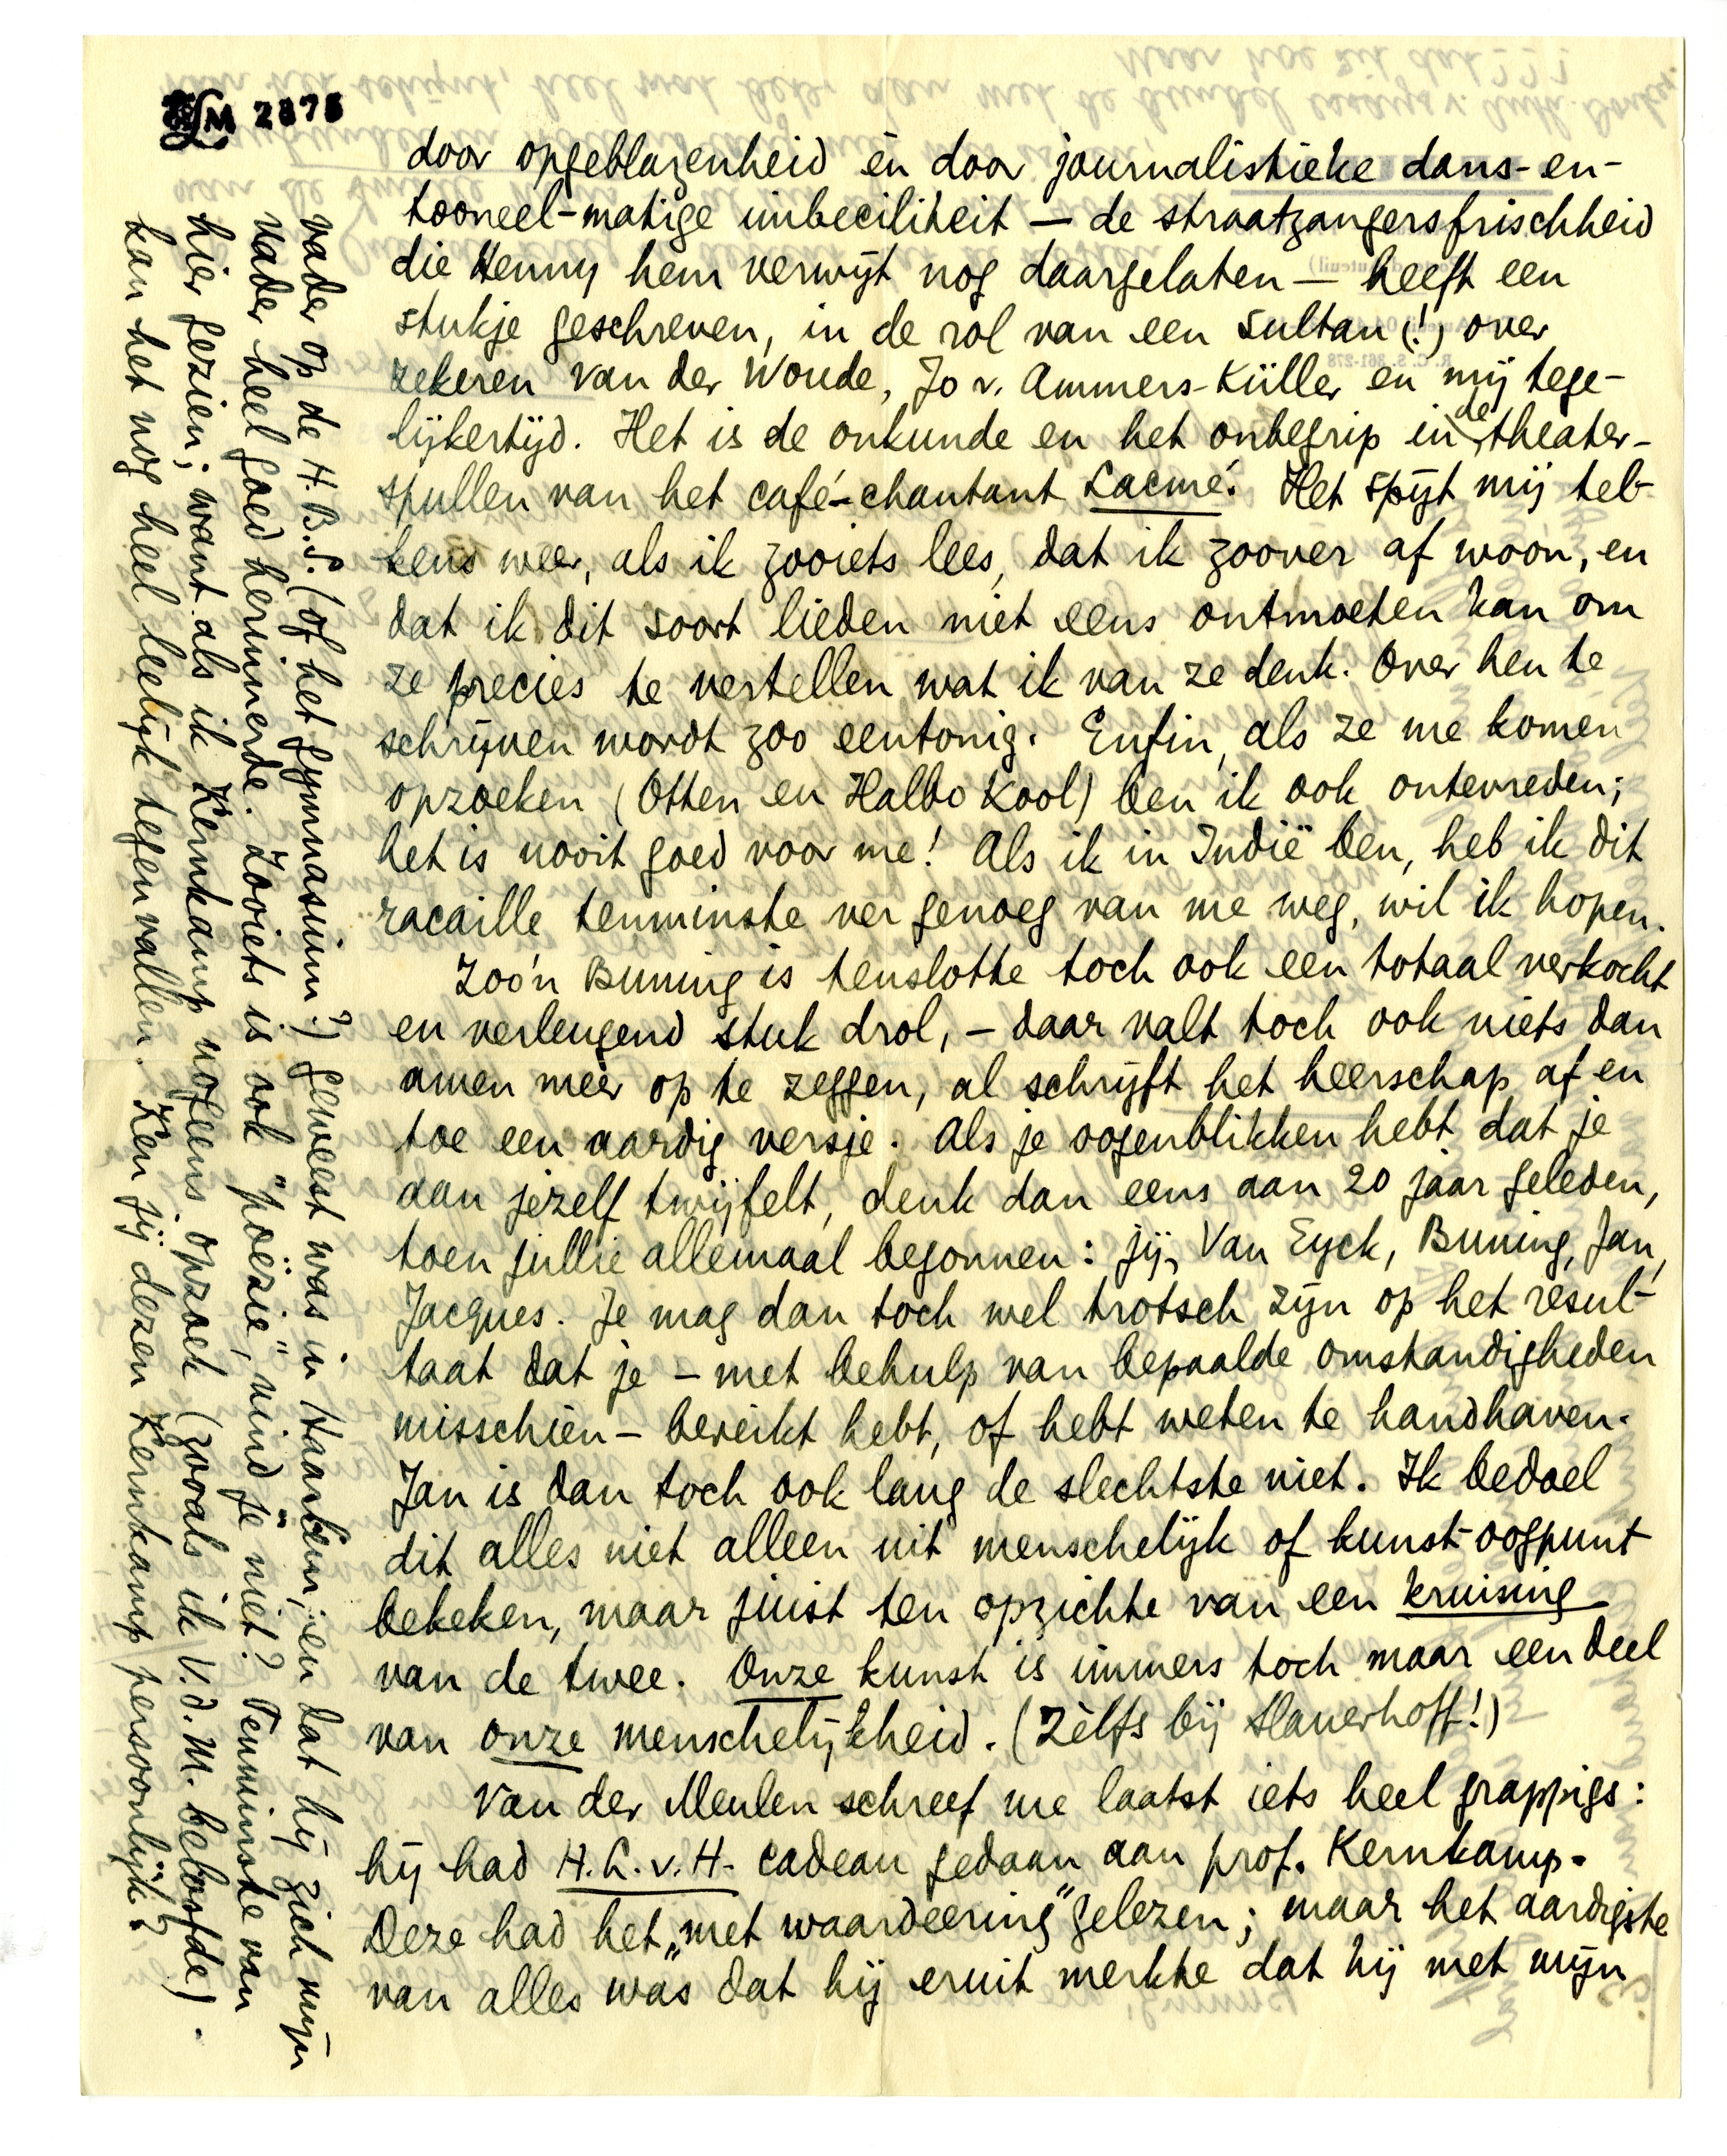 LM 2875
door opgeblazenheid èn door journalistieke dans- en-
tooneel-matige imbeciliteit — de straatzangersfrischheid
die Henny hem verwijt nog daargelaten — heeft een
stukje geschreven, in de rol van een sultan (!) over
zekeren van der Woude, Jo v. Ammers-Küller en mij tege-
lijkertijd. Het is de onkunde en het onbegrip in de theater-
spullen van het café-chantant Lacmé! Het spijt mij tel-
kens weer, als ik zooiets lees, dat ik zoover af woon, en
dat ik dit soort lieden niet eens ontmoeten kan om
ze precies te vertellen wat ik van ze denk. Over hen te
schrijven wordt zoo eentonig. Enfin, als ze me komen
opzoeken (Otten en Halbo Kool) ben ik ook ontevreden;
het is nooit goed voor me! Als ik in Indië ben, heb ik dit
racaille tenminste ver genoeg van me weg, wil ik hopen.
Zoo'n Buning is tenslotte toch ook een totaal verkocht
en verleugend stuk drol, — daar valt toch ook niets dan
amen meer op te zeggen, al schrijft het heerschap af en
toe een aardig versje. Als je oogenblikken hebt dat je
aan jezelf twijfelt, denk dan eens aan 20 jaar geleden,
toen jullie allemaal begonnen: jij, Van Eyck, Buning, Jan,
Jacques. Je mag dan toch wel trotsch zijn op het resul-
taat dat je — met behulp van bepaalde omstandigheden
misschien — bereikt hebt, of hebt weten te handhaven.
Jan is dan toch ook lang de slechtste niet. Ik bedoel
dit alles niet alleen uit menschelijk of kunst-oogpunt
bekeken, maar juist ten opzichte van een kruising
van de twee. Onze kunst is immers toch maar een deel
van onze menschelijkheid. (Zèlfs bij Slauerhoff!)
Van der Meulen schreef me laatst iets heel grappigs:
hij had H.L.v.H. cadeau gedaan aan prof. Kernkamp.
Deze had het „met waardeering" gelezen; maar het aardigste
van alles was dat hij eruit merkte dat hij met mijn
vader op de H.B.S. (of het gymnasium?) geweest was in Haarlem, en dat hij zich mijn
vader heel goed herinnerde. Zooiets is ook "poëzie", vind je niet? Tenminste van
hier gezien; want als ik Kernkamp nog eens opzoek (zooals ik V.d.M. beloofde)
kan het nog heel leelijk tegenvallen. Ken jij dezen Kernkamp persoonlijk?